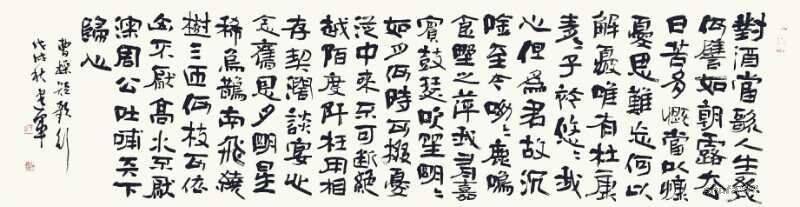 對酒當歌人生幾
何譬如朝露去
日苦多慨當以慷
憂思難忘何以
解憂唯有杜康
青〻子衿悠〻我
心但為君故沉
吟至今呦〻鹿鳴
食野之萍我有嘉
賓鼓瑟吹笙明〻
如月何時可掇憂
從中來不可斷絕
越陌度阡枉用相
存契闊談宴心
念舊恩月明星
稀烏鵲南飛繞
樹三匝何枝可依
山不厭高水不厭
深周公吐哺天下
歸心
曹操短歌行
戊戌秋